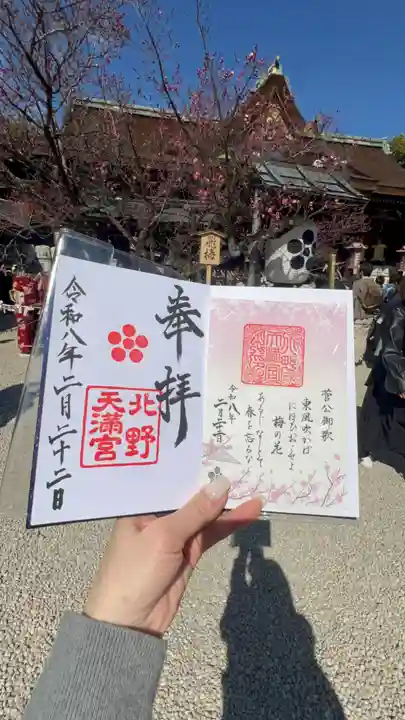 飛梅
奉拝
北野
天満宮
令和八年二月二十二日
菅公御歌
東風吹かば
にほひおこせよ
梅の花
あるじなしとて
春を忘るな
令和八年